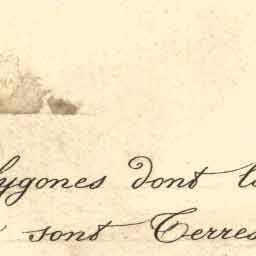 lygones dont l
sont Terres